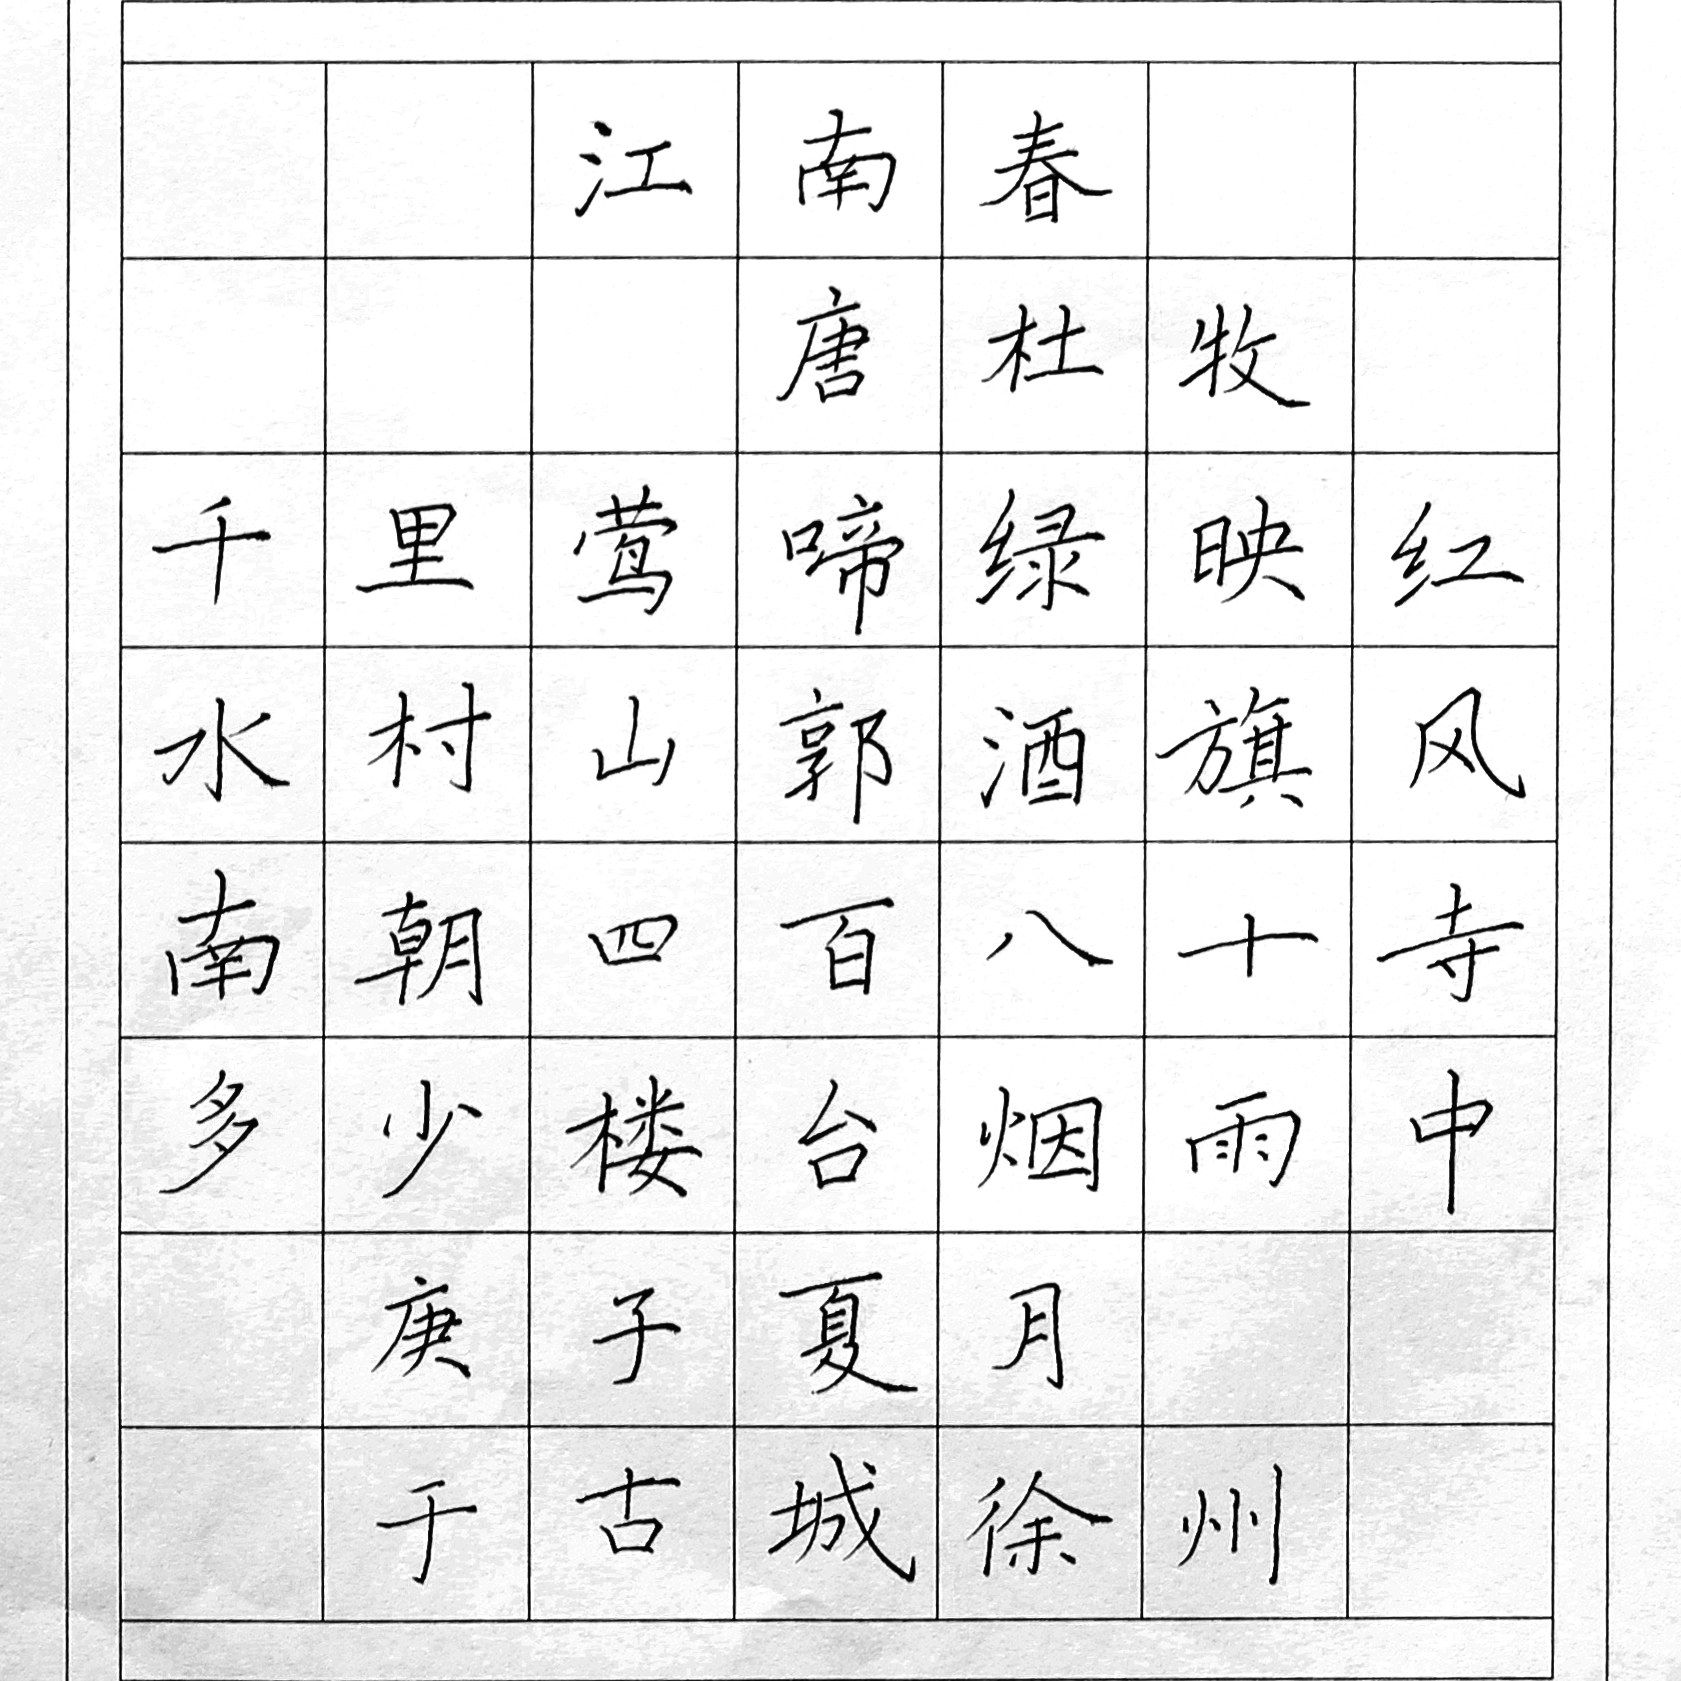 江南春
唐杜牧
千里莺啼绿映红
水村山郭酒旗风
南朝四百八十寺
多少楼台烟雨中
庚子夏月
于古城徐州